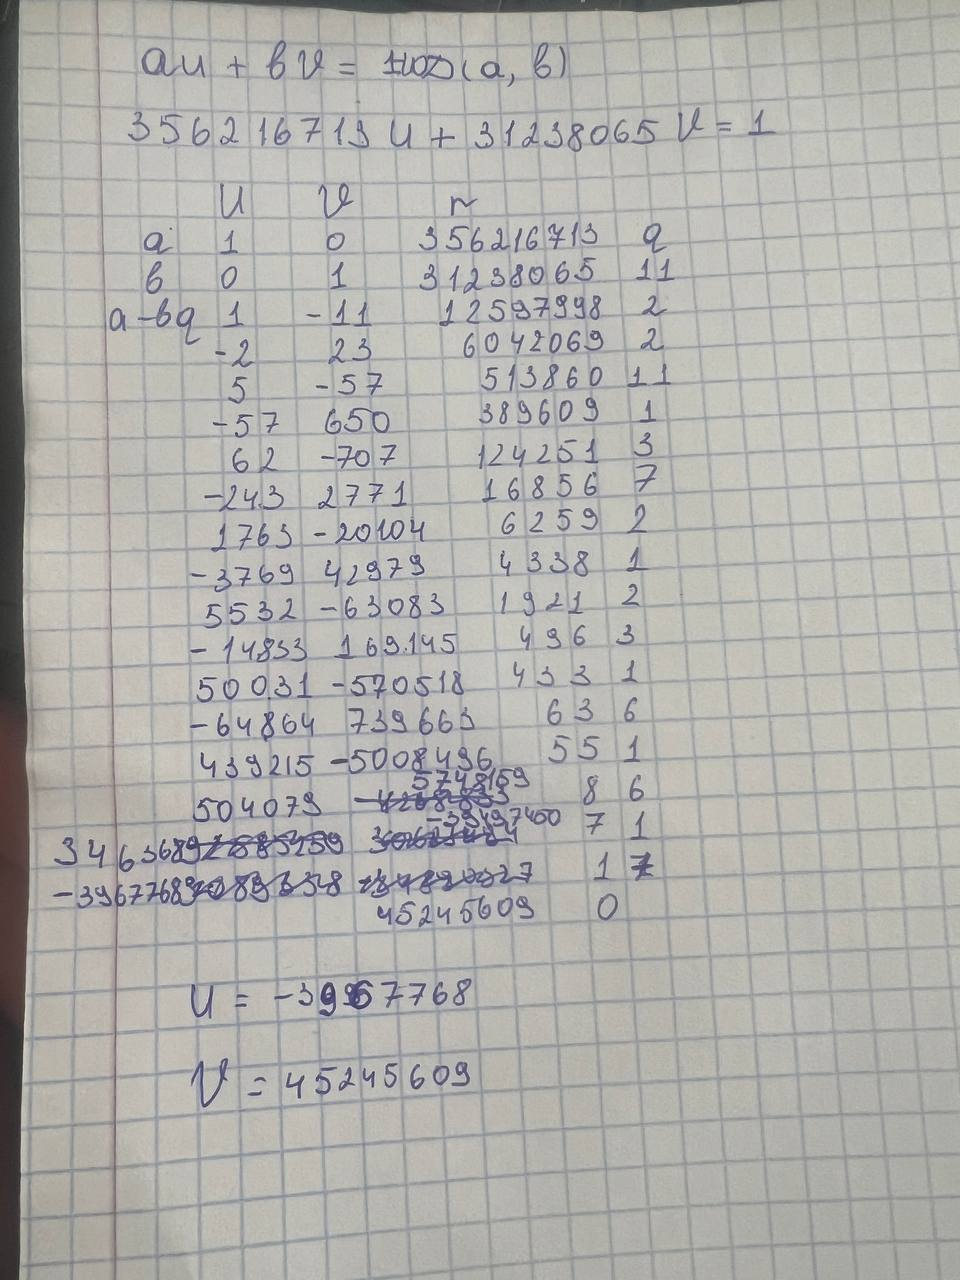 au + bv = НОД(a, b)
356216713 u + 31238065 v = 1
u v r
a 1 0 356216713 q
b 0 1 31238065 11
a-bq 1 -11 12597998 2
-2 23 6042069 2
5 -57 513860 11
-57 650 389609 1
62 -707 124251 3
-243 2771 16856 7
1763 -20104 6259 2
-3769 42979 4338 1
5532 -63083 1921 2
-14833 169145 496 3
50031 -570518 433 1
-64864 739663 63 6
439215 -5008496 55 1
5748159
504079 8 6
-39497400
3463689 7 1
-3967768 1 7
45245609 0
u = -3967768
v = 45245609